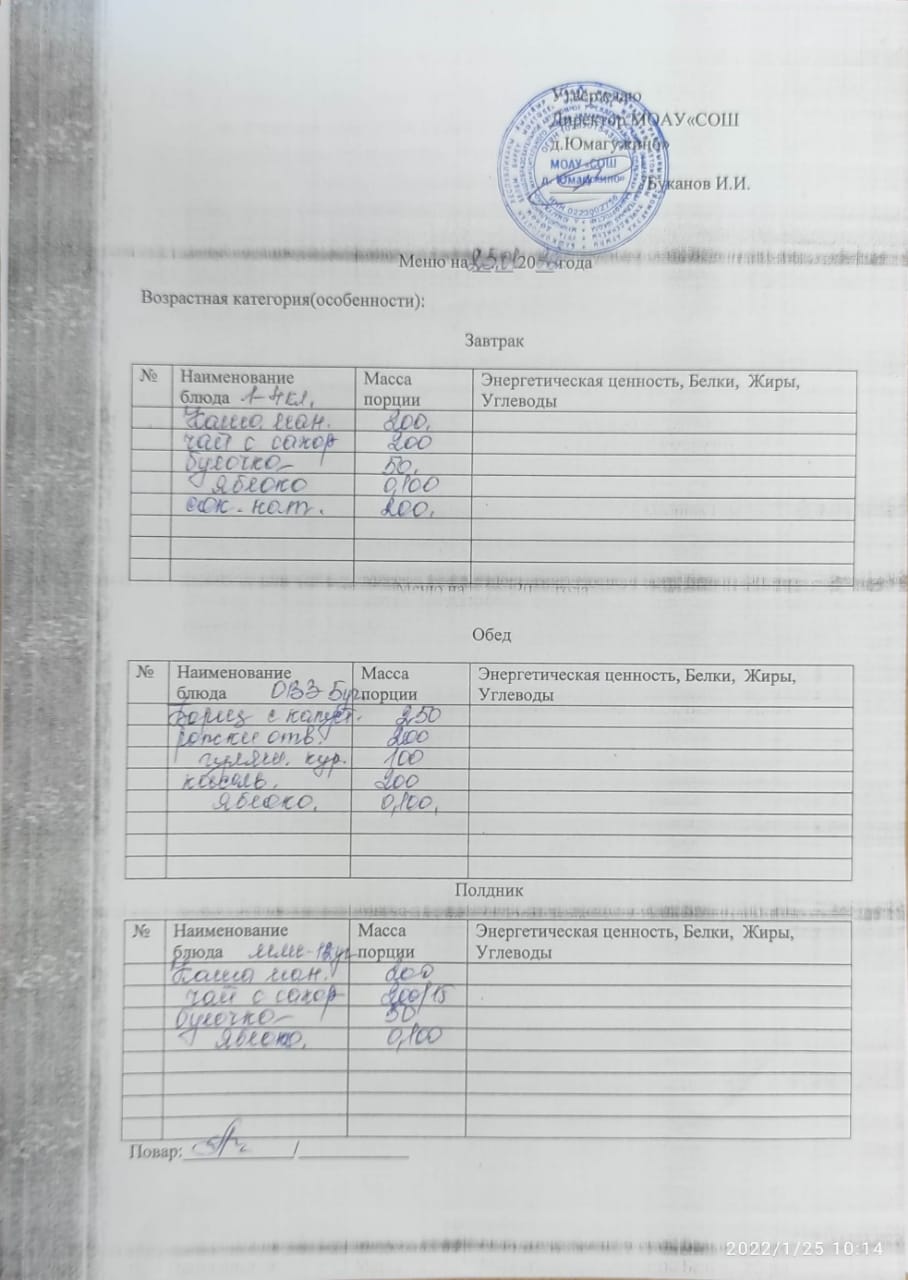 Утверждаю
Директор МОАУ«СОШ
д.Юмагужино»
МОАУ «СОШ
д. Юмагужино»
Буканов И.И.
Меню на 25.01 20 года
Возрастная категория(особенности):
Завтрак
№ Наименование блюда 1-4 кл. Масса порции Энергетическая ценность, Белки, Жиры, Углеводы
Каша ман. 200.
чай с сахар 200
булочка 50.
яблоко 0,100
сок. нат. 200.
Меню на года
Обед
№ Наименование блюда ОВЗ Масса порции Энергетическая ценность, Белки, Жиры, Углеводы
Борщ с капуст. 250
рожки отв. 200
гуляш. кур. 100
кисель. 200
яблоко. 0,100.
Полдник
№ Наименование блюда Масса порции Энергетическая ценность, Белки, Жиры, Углеводы
Каша ман. 200
чай с сахар 200/15
булочка 50
яблоко. 0,100
Повар: /
2022/1/25 10:14